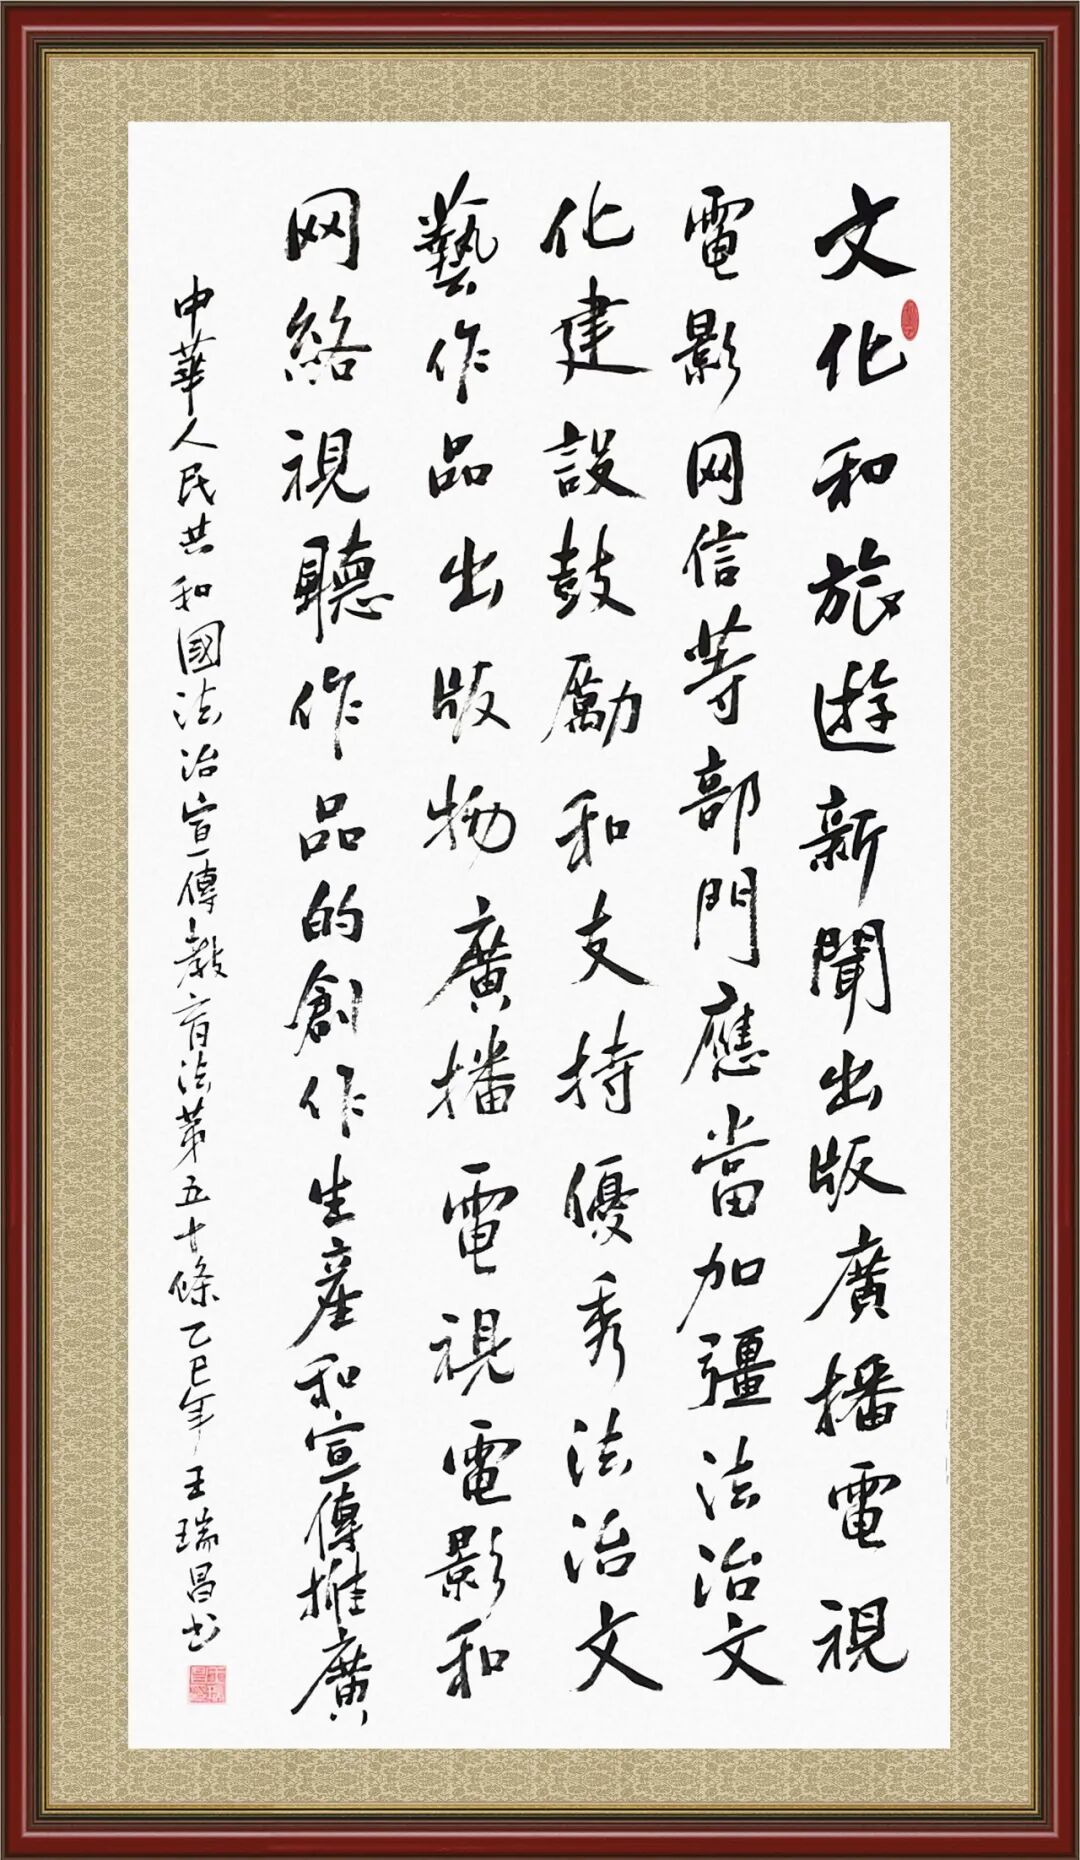 文化和旅遊新聞出版廣播電視
電影网信等部門應當加彊法治文
化建設鼓勵和支持優秀法治文
藝作品出版物廣播電視電影和
网絡視聽作品的創作生產和宣傳推廣
中華人民共和國法治宣傳教育法第五十條乙巳年王瑞昌书